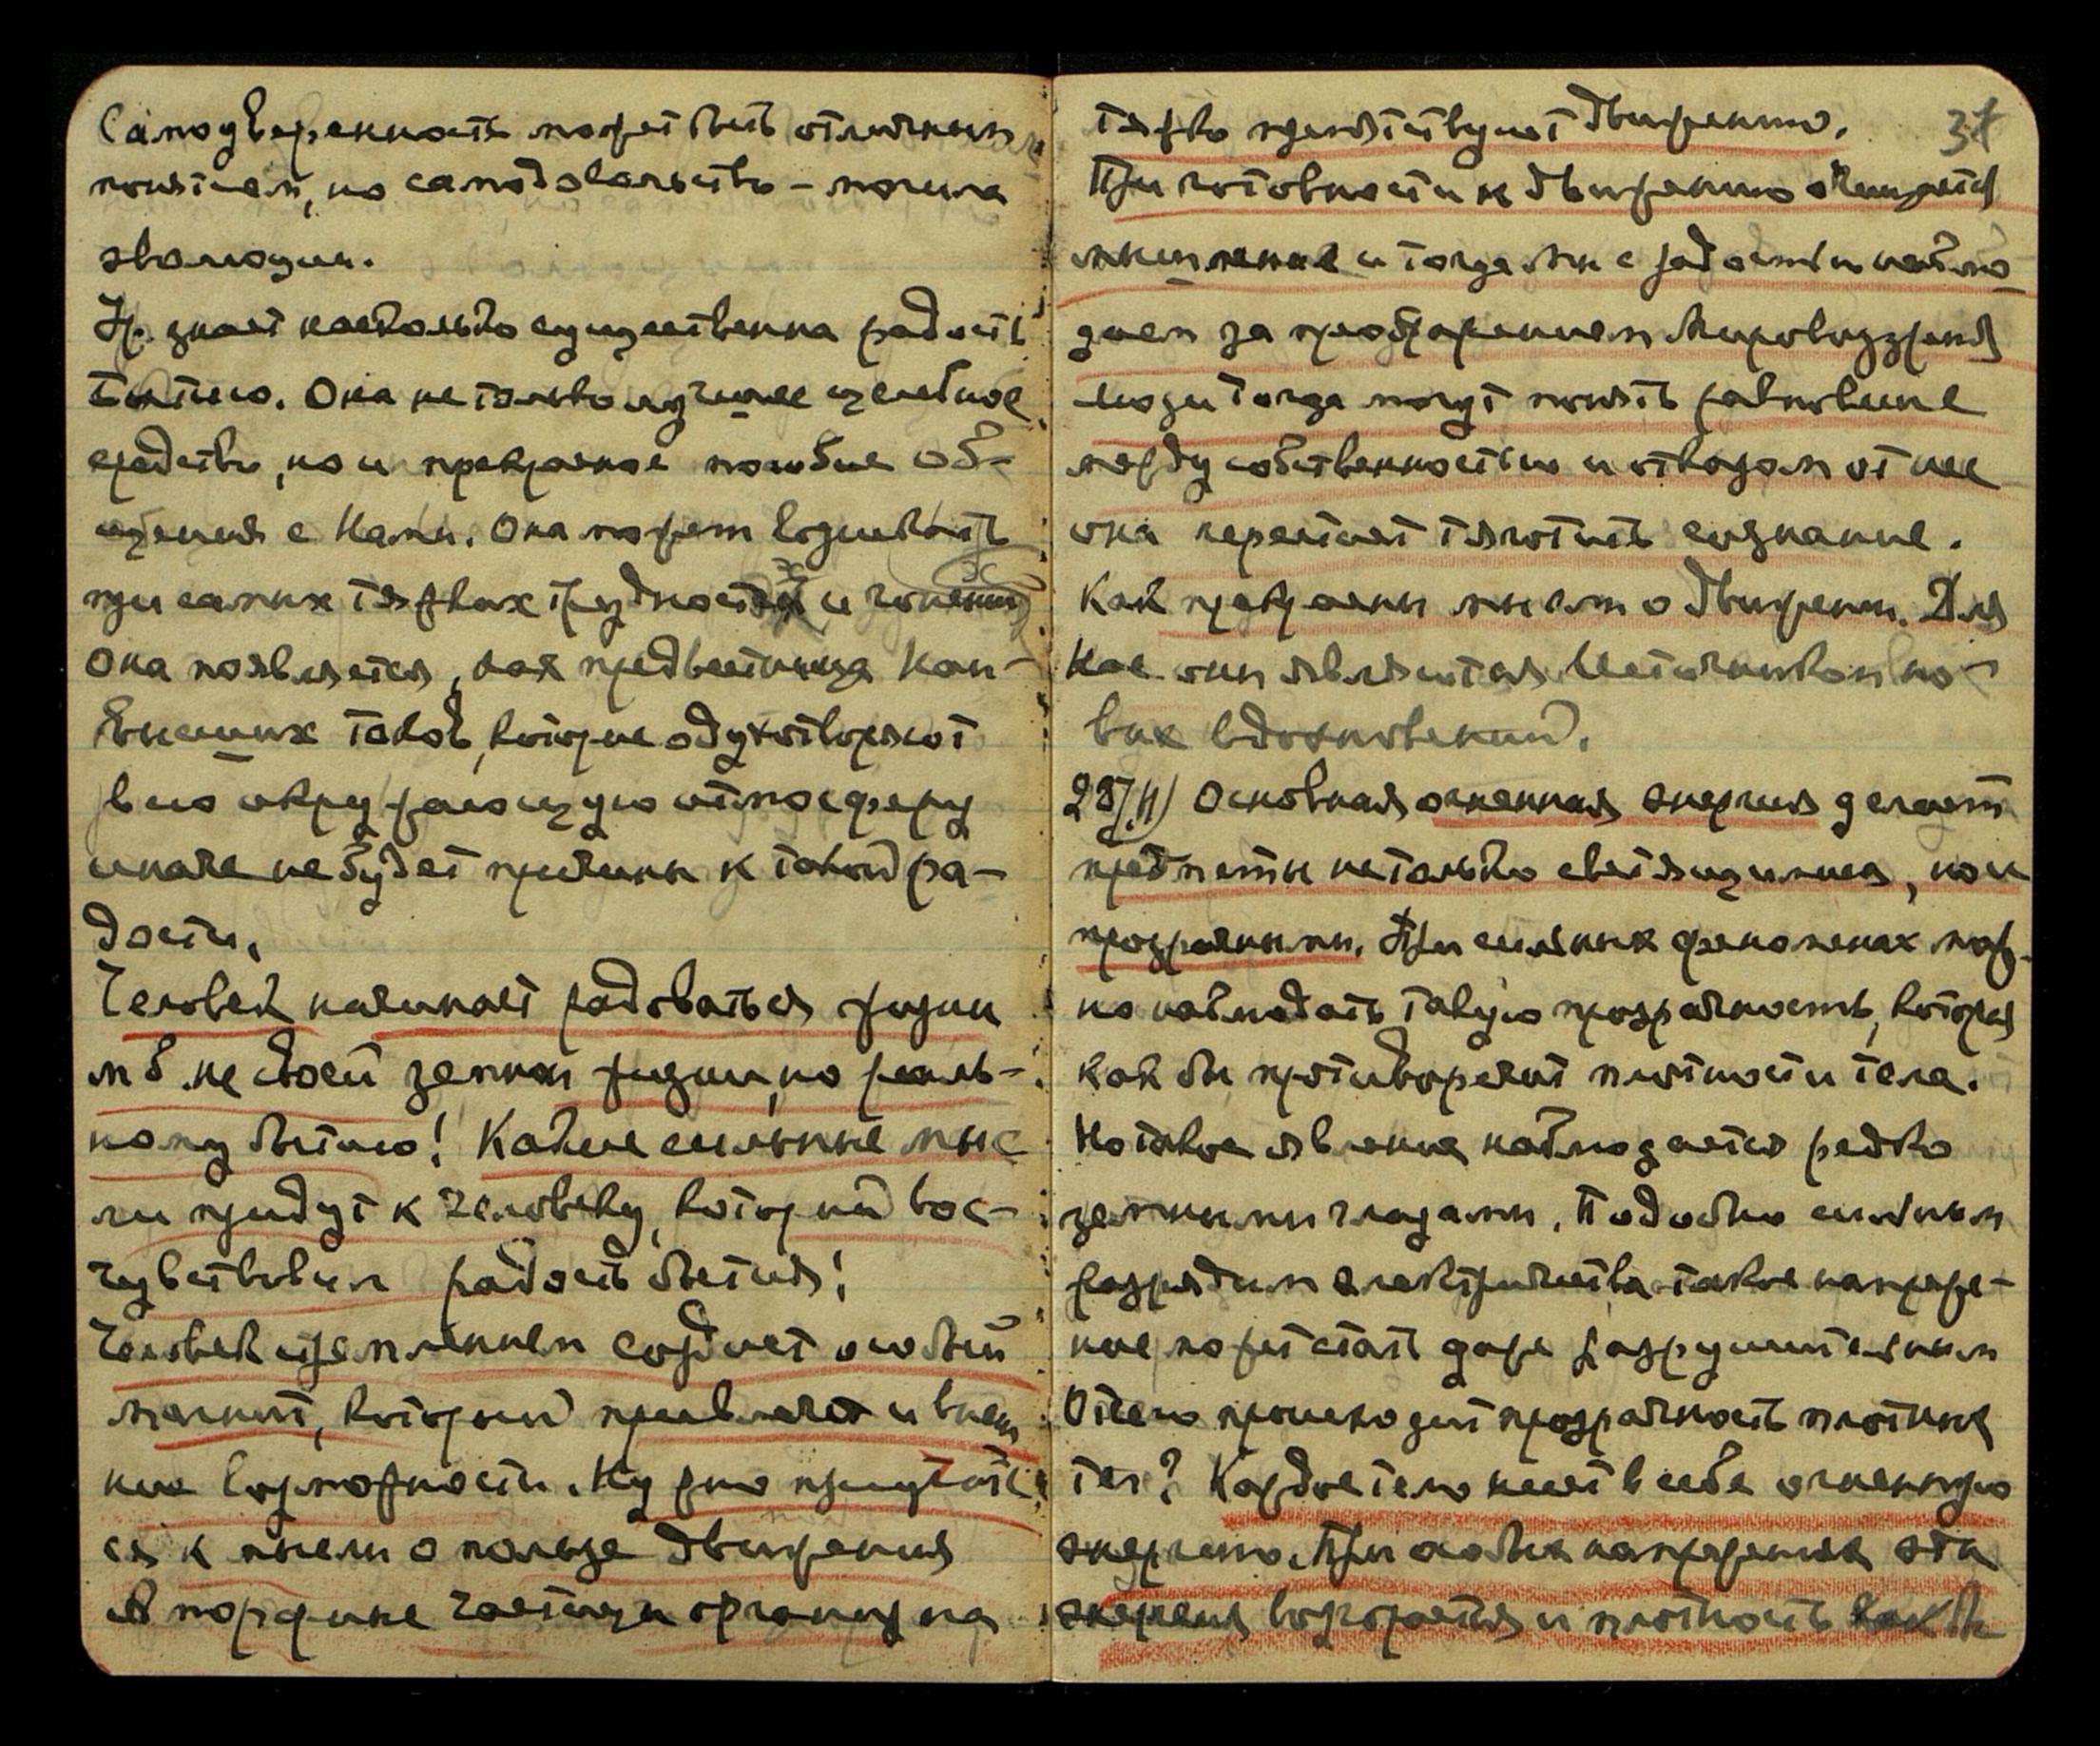 Самоудверженность может быть отличным
понятием, но самодовольство – могила
эволюции.
Ур. знает насколько существенна радость
Бытию. Она не только лучшее целебное
средство, но и прекрасное пособие об-
щения с Нами. Она может возникать
при самых тяжких трудностях и гонениях
Она появляется, как предвестница Наи-
высших токов, которые одухотворяют
всю окружающую атмосферу
иначе не будет причины к такой ра-
дости.
Человек начинает радоваться жизни
м б. не своей земной жизни, но реаль-
ному бытию! Какие сильные мыс
ли придут к человеку, который вос-
чувствовал радость бытия!
Человек стремлением создает особый
магнит, который привлечет и внеш
ние возможности. Нужно приучать
ся к мысли о пользе движения
Аморфные частицы организма
тяжко препятствуют движению. 37
При готовности к движению очищается
мышление и тогда мы с радостью наблю
даем за преображением Мировоззрения
люди тогда могут понять равновесие
между собственностью и отказом от нее
она перестает тяготить сознание.
Как прекрасны мысли о движении. Для
Нас они являются Источником но-
вых вдохновений.
Основная огненная энергия делает
предметы не только светящимися, но и
прозрачными. При сильных феноменах мож-
но наблюдать такую прозрачность, которая
как бы противоречит плотности тела.
Но такое явление наблюдается редко
земными глазами. Подобно сильным
разрядам электричества такое напряже-
ние может стать даже разрушительным
Отчего происходит прозрачность плотных
тел? Каждое тело имеет в себе огненную
энергию. При особых напряжениях эта
энергия возгорается и плотность как бы